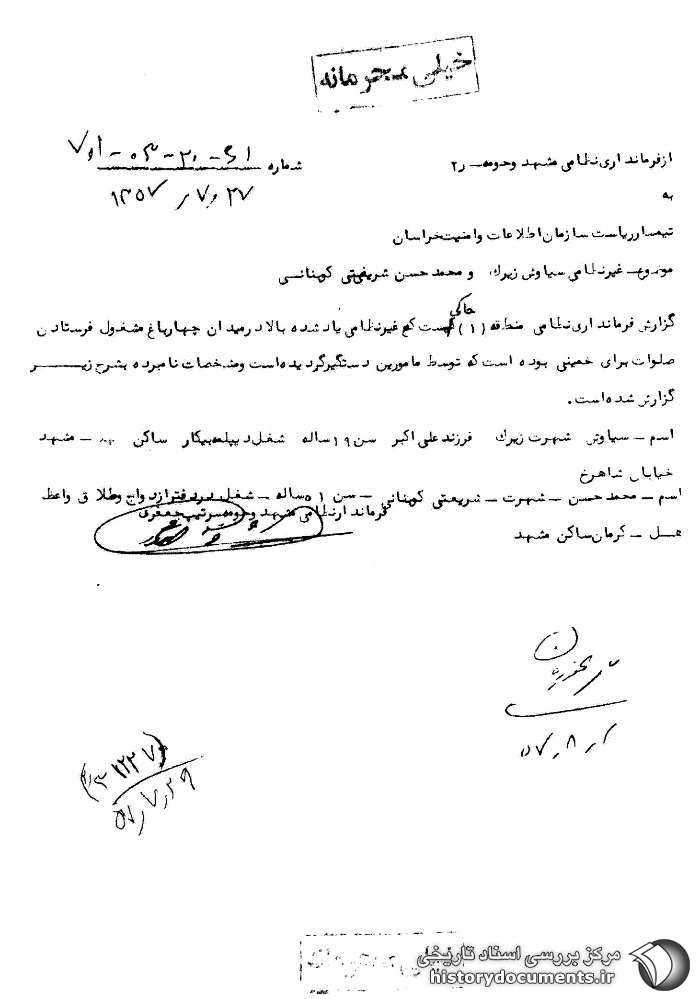 خیلی محرمانه
شماره ۷۰۱-۰۳-۲۰-
۱۳۵۷/۷/۲۷
از فرمانداری نظامی مشهد و حومه - ر۲
به
تیمسار ریاست سازمان اطلاعات و امنیت خراسان
موضوع - غیرنظامی سیاوش زیرک و محمد حسن شریعتی کهنانی
گزارش فرمانداری نظامی منطقه (۱) حاکیست که غیرنظامی یاد شده بالا در میدان چهارباغ مشغول فرستادن
صلوات برای خمینی بوده است که توسط مامورین دستگیر گردیده است و مشخصات نامبرده بشرح زیر
گزارش شده است.
اسم - سیاوش شهرت زیرک فرزند علی اکبر سن ۱۹ ساله شغل دیپلمه بیکار ساکن - مشهد
خیابان شاهرخ
اسم - محمد حسن - شهرت - شریعتی کهنانی - سن ۵۱ ساله - شغل سردفتر ازدواج و طلاق واعظ
اهل - کرمان ساکن مشهد
فرماندار نظامی مشهد و حومه سرتیپ جعفری
۵۷/۸/۲
۱۲۳۷
۵۷/۷/۲۹
خیلی محرمانه
مرکز بررسی اسناد تاریخی
historydocuments.ir